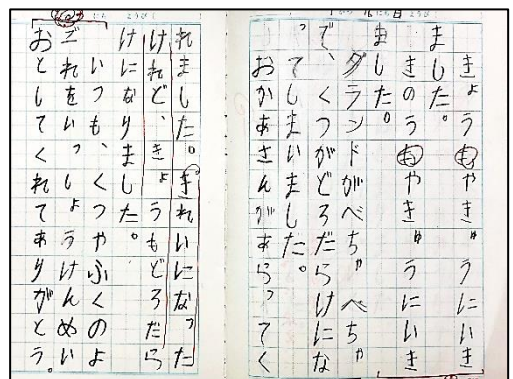 きょうもやきゅうにいき
ました。
きのうもやきゅうにいき
ました。
グランドがべちゃべちゃ
で、くつがどろだらけにな
ってしまいました。
おかあさんがあらってく
にち ようび
れました。きれいになった
けれど、きょうもどろだら
けになりました。
いつも、くつやふくのよ
ごれをいっしょうけんめい
おとしてくれてありがとう。